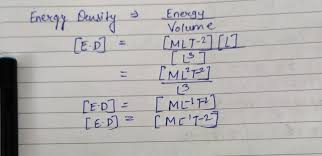 Energy Density ⇒ Energy
Volume
[E.D] = [MLT-2] [L]
[L3]
= [ML2T-2]
L3
[E.D] = [ML-1T-2]
[E.D] = [ML-1T-2]